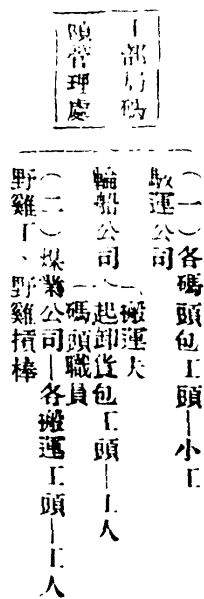 工部局碼
頭管理處
（一）各碼頭包工頭—小工
駁運公司
搬運夫
輪船公司 起卸貨包工頭—工人
碼頭職員
（二）煤業公司—各搬運工頭—工人
野雞工、野雞摃棒